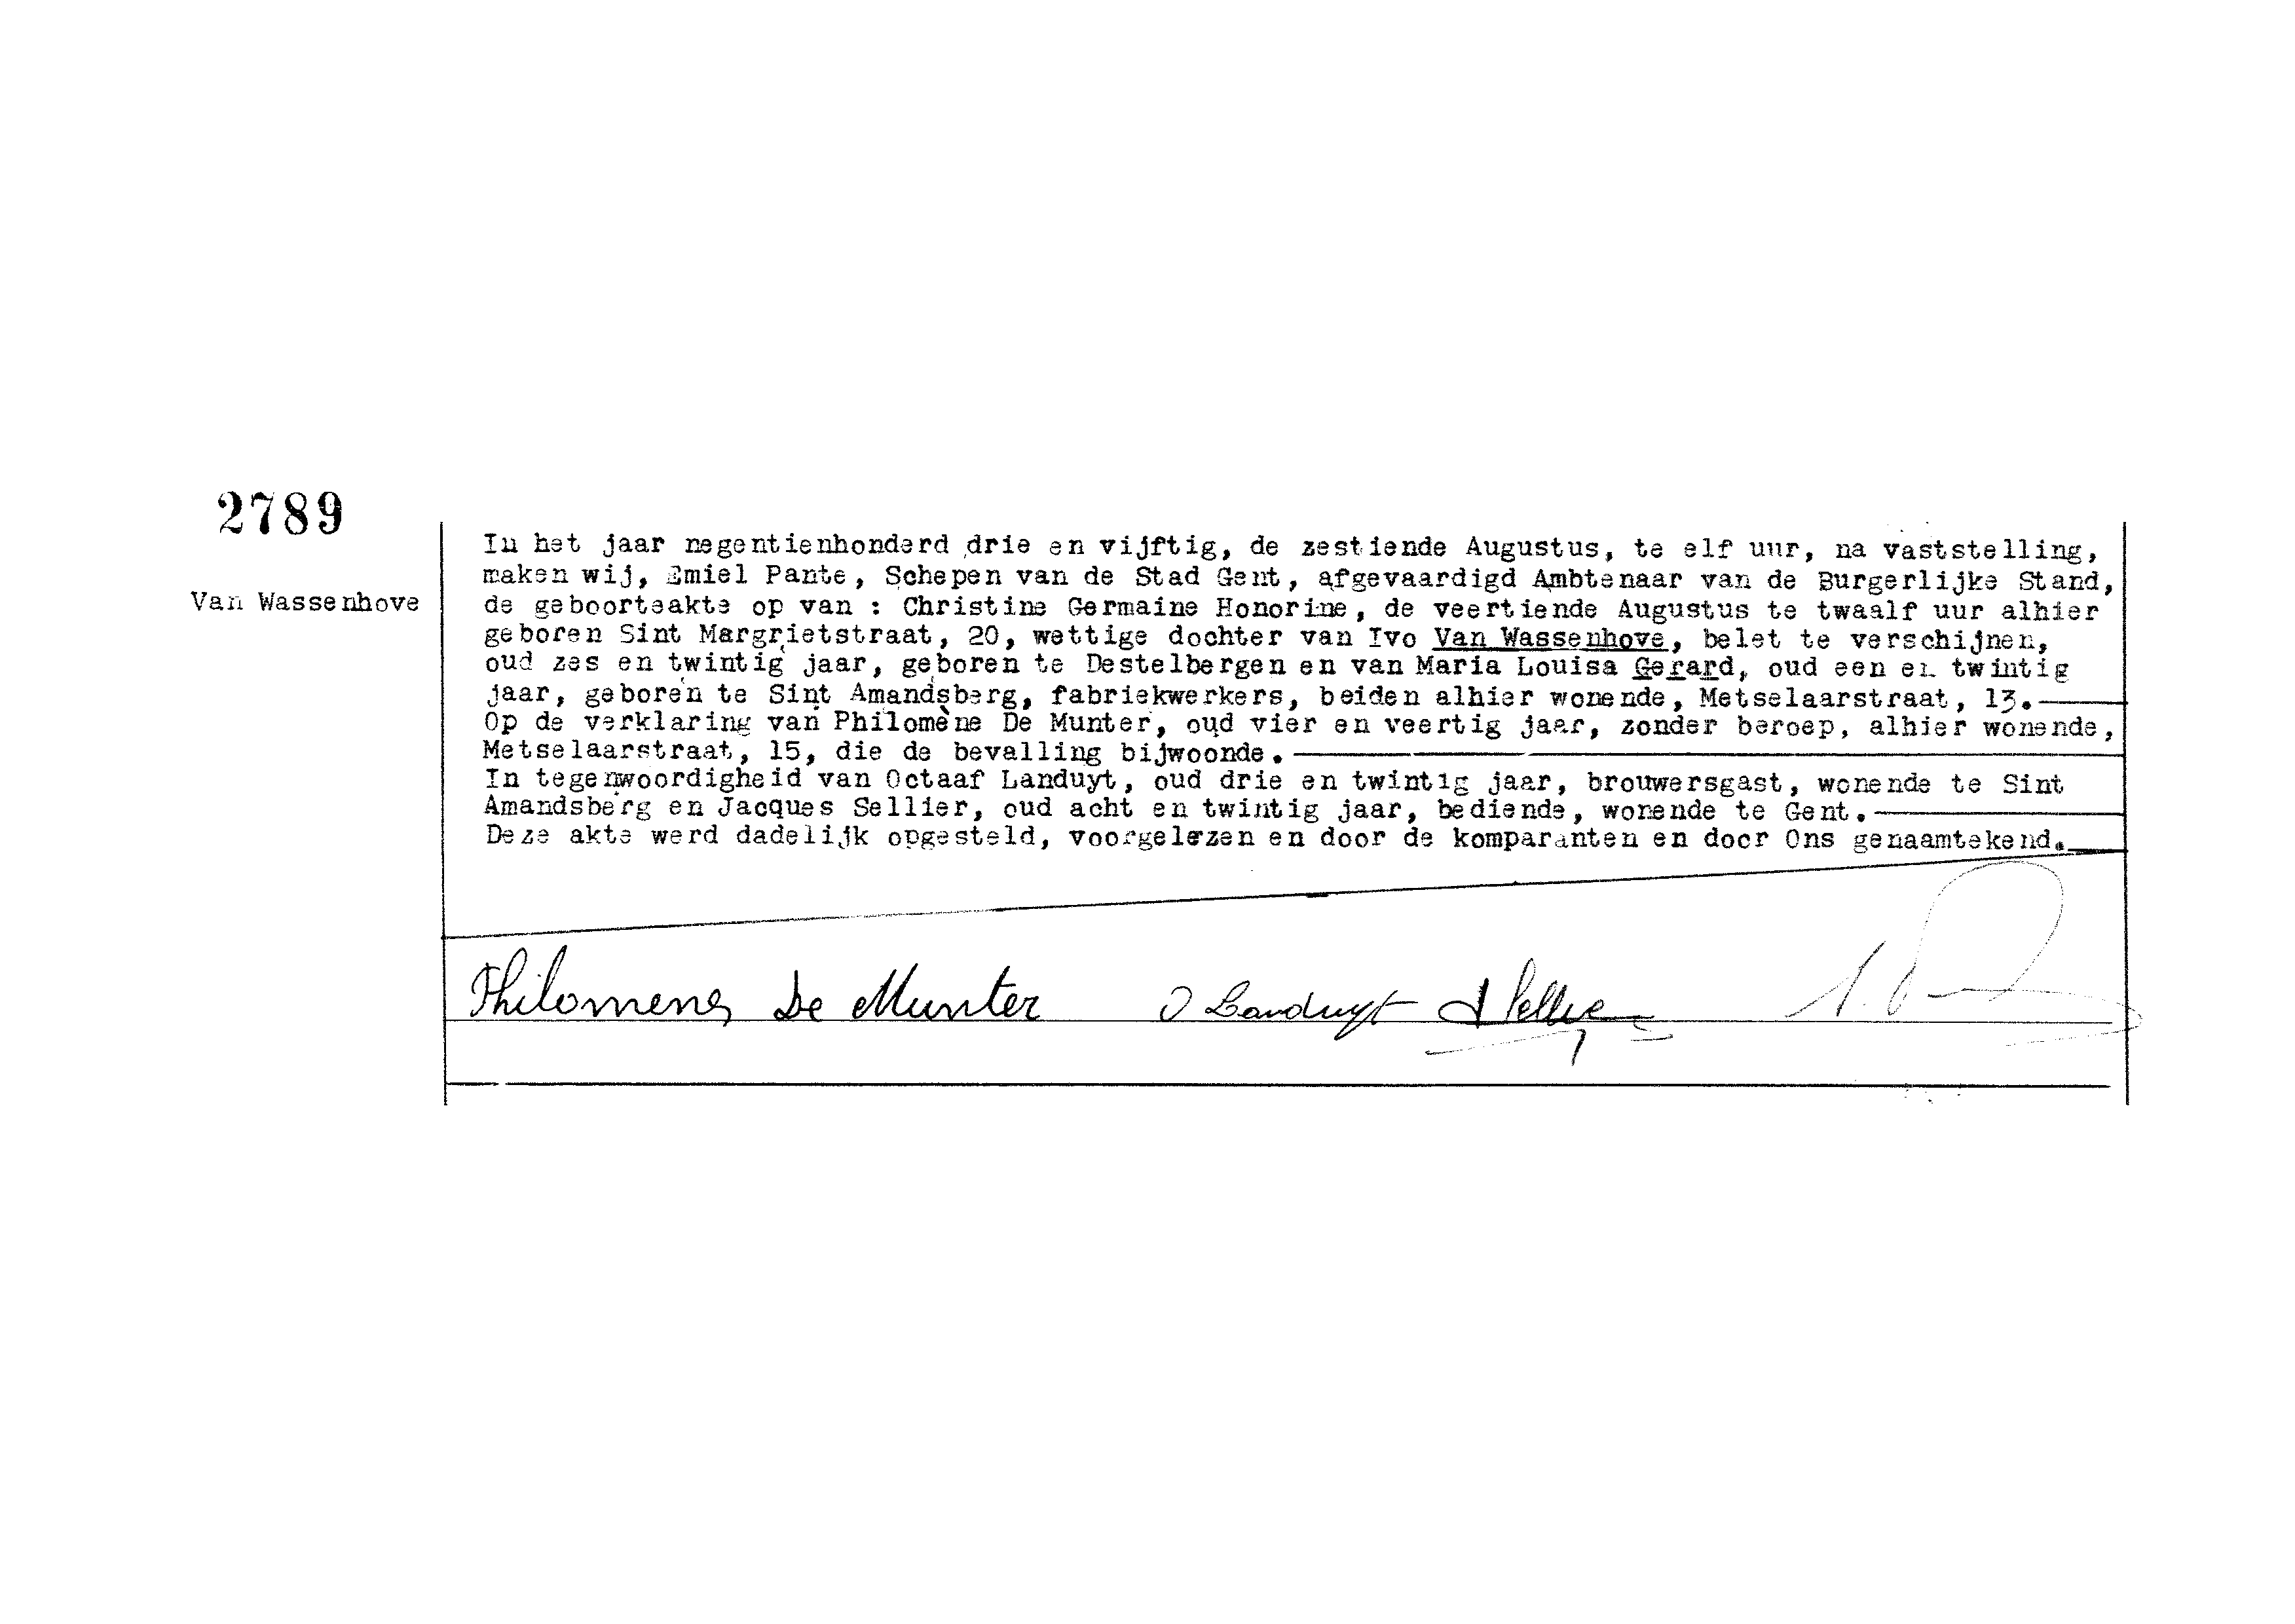 2789
Van Wassenhove
In het jaar negentienhonderd drie en vijftig, de zestiende Augustus, te elf uur, na vaststelling,
maken wij, Emiel Pante, Schepen van de Stad Gent, afgevaardigd Ambtenaar van de Burgerlijke Stand,
de geboorteakte op van : Christine Germaine Honorine, de veertiende Augustus te twaalf uur alhier
geboren Sint Margrietstraat, 20, wettige dochter van Ivo Van Wassenhove, belet te verschijnen,
oud zes en twintig jaar, geboren te Destelbergen en van Maria Louisa Gerard, oud een en twintig
jaar, geboren te Sint Amandsberg, fabriekwerkers, beiden alhier wonende, Metselaarstraat, 13.
Op de verklaring van Philomène De Munter, oud vier en veertig jaar, zonder beroep, alhier wonende,
Metselaarstraat, 15, die de bevalling bijwoonde.
In tegenwoordigheid van Octaaf Landuyt, oud drie en twintig jaar, brouwersgast, wonende te Sint
Amandsberg en Jacques Sellier, oud acht en twintig jaar, bediende, wonende te Gent.
Deze akte werd dadelijk opgesteld, voorgelezen en door de komparanten en door Ons genaamtekend.
Philomene De Munter O Landuyt J Sellier